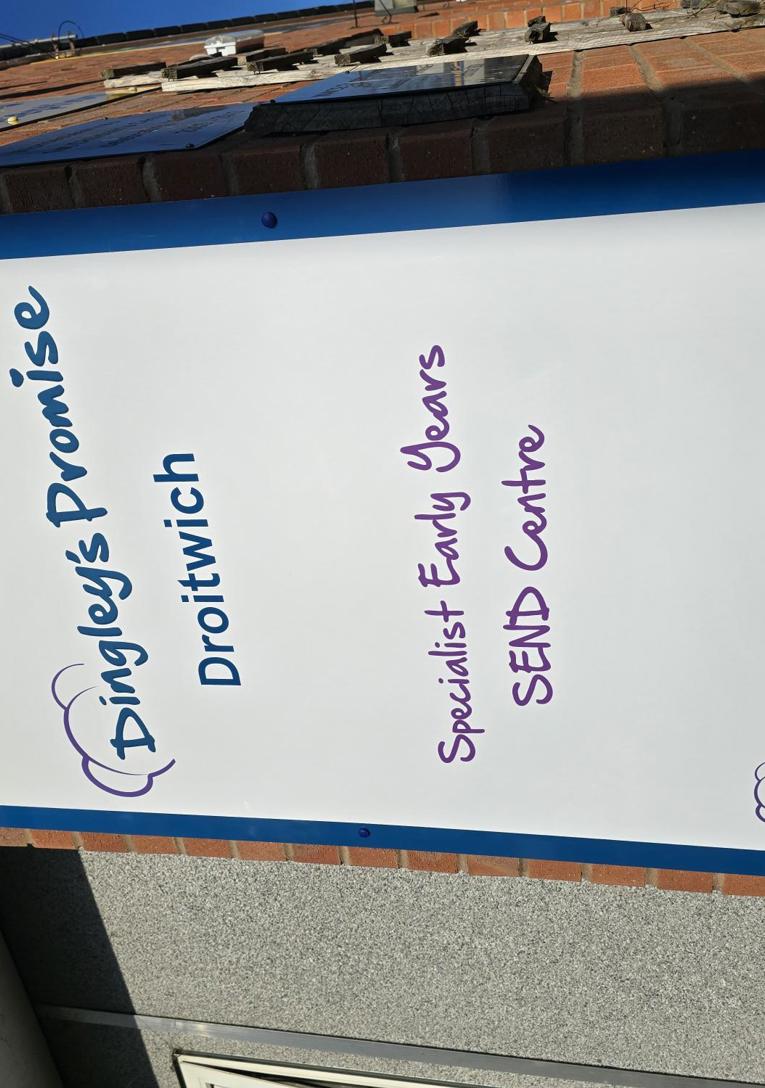 Dingley's Promise
Droitwich
Specialist Early Years
SEND Centre